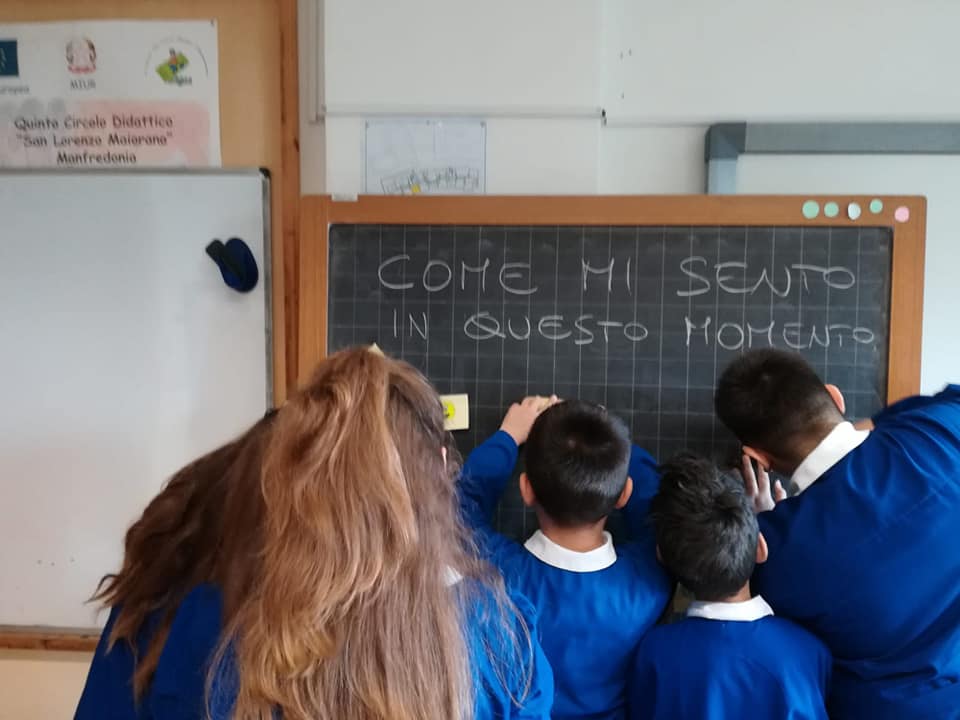 MIUR
Quinto Circolo Didattico
"San Lorenzo Maiorano"
Manfredonia
COME MI SENTO
IN QUESTO MOMENTO